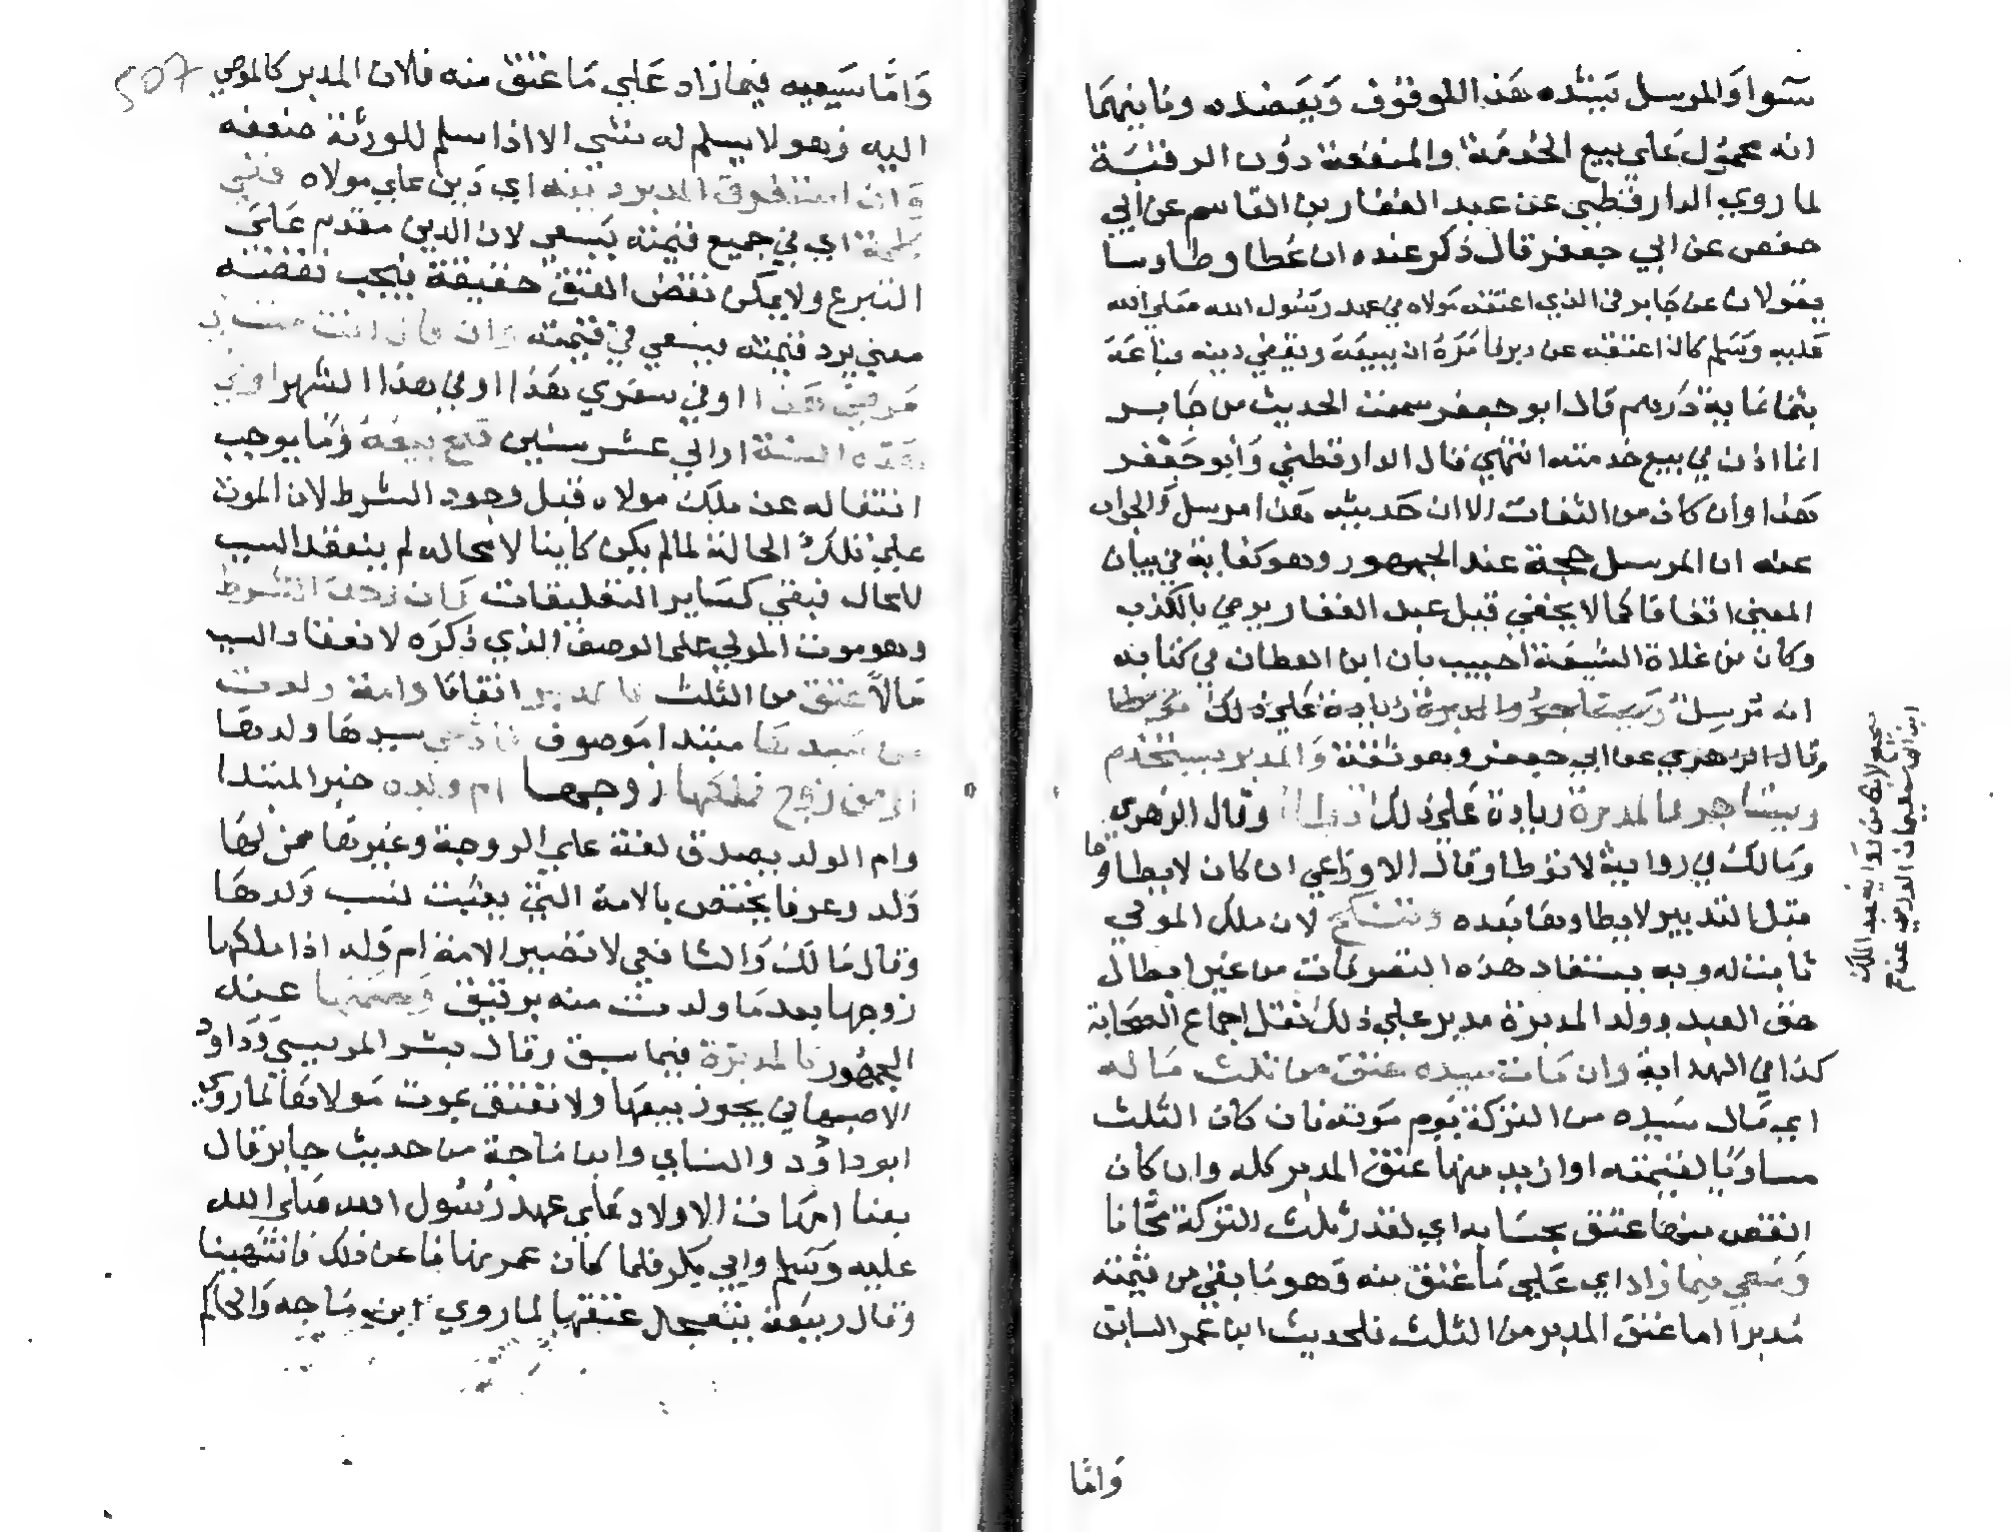 سوا والمرسل يشده هذا الموقوف ويعضده وثانيهما
انه محمول علي بيع الخدمة والمنفعة دون الرقبة
لما روي الدارقطني عن عبد الغفار بن القاسم عن ابي
حفص عن ابي جعفر قال ذكر عنده ان عطا وطاوسا
يقولان عن جابر في الذي اعتقه مولاه في عهد رسول الله صلي الله
عليه وسلم كان اعتقه عن دبر فامره ان يبيعه ويقضي دينه فباعه
بثمانماية درهم قال ابو جعفر سمعت الحديث من جابر
انما اذن في بيع خدمته انتهي قال الدارقطني وابو جعفر
هذا وان كان من الثقات الا ان حديثه هذا مرسل والجواب
عنه ان المرسل حجة عند الجمهور وهو كفاية في بيان
المعني اتفاقا كما لا يخفي قيل عبد الغفار يرمي بالكذب
وكان من غلاة الشيعة اجيب بان ابن القطان في كتابه
انه مرسل صحيح لانه من رواية عبد الملك
ابن ابي سليمان العرزمي عن ح
وقال الزهري عن ابي جعفر وهو ثقة والمدبر يستخدم
ويستاجر والمدبرة زيادة علي ذلك توطا وقال الزهري
ومالك في رواية لا توطا وقال الاوزاعي ان كان لا يطاوها
قبل التدبير لا يطاوها بعده وتنكح لان ملك المولي
ثابت له وبه يستفاد هذه التصرفات من غير ابطال
حق العبد وولد المدبرة مدبر علي ذلك نقل اجماع الصحابة
كذا في الهداية وان مات سيده عتق من ثلث ماله
اي مال سيده من التركة يوم موته فان كان الثلث
مساويا لقيمته او ازيد منها عتق المدبر كله وان كان
انقص منها عتق بحسابه اي لقدر ثلث التركة مجانا
وسعي فيما زاد اي علي ما عتق منه وهو ما بقي من قيمته
مدبرا اما عتق المدبر من الثلث فلحديث ابن عمر السابق
واما
507
واما سعيه فيما زاد علي ما عتق منه فلان المدبر كالموصي
اليه وهو لا يسلم له شي الا اذا سلم للورثة ضعفه
وان استغرق المدبر دينه اي دين علي مولاه ففي
كله اي في جميع قيمته يسعي لان الدين مقدم علي
التبرع ولا يمكن نقض العتق حقيقة فيجب نقضه
معني برد قيمته فيسعي في قيمته وان قال ان مت من
مرضي هذا او في سفري هذا او في هذا الشهر او في
هذه السنة او الي عشر سنين صح بيعه وما يوجب
انتقاله عن ملك مولاه قبل وجود الشرط لان الموت
علي تلك الحالة لما لم يكن كاينا لا محالة لم ينعقد السبب
للحال فبقي كساير التعليقات فان وجد الشرط
وهو موت المولي علي الوصف الذي ذكره لانعقاد السبب
حالا عتق من الثلث كالمدبر اتفاقا وامة ولدت
من سيدها مبتدا موصوف فادعي سيدها ولدها
او من زوج فملكها زوجها ام ولده خبر المبتدا
وام الولد يصدق لغة علي الزوجة وغيرها ممن لها
ولد وعرفا يختص بالامة التي يثبت نسب ولدها
وقال مالك والشافعي لا تصير الامة ام ولد اذا ملكها
زوجها بعد ما ولدت منه برقيق وحكمها عند
الجمهور كالمدبرة فيما سبق وقال بشر المريسي وداود
الاصبهاني يجوز بيعها ولا تعتق بموت مولاها لما روي
ابو داود والنساي وابن ماجة من حديث جابر قال
بعنا امهات الاولاد علي عهد رسول الله صلي الله
عليه وسلم وابي بكر فلما كان عمر نهانا عن ذلك فانتهينا
وقال ربيعة يتعجل عتقها لما روي ابن ماجه والحاكم